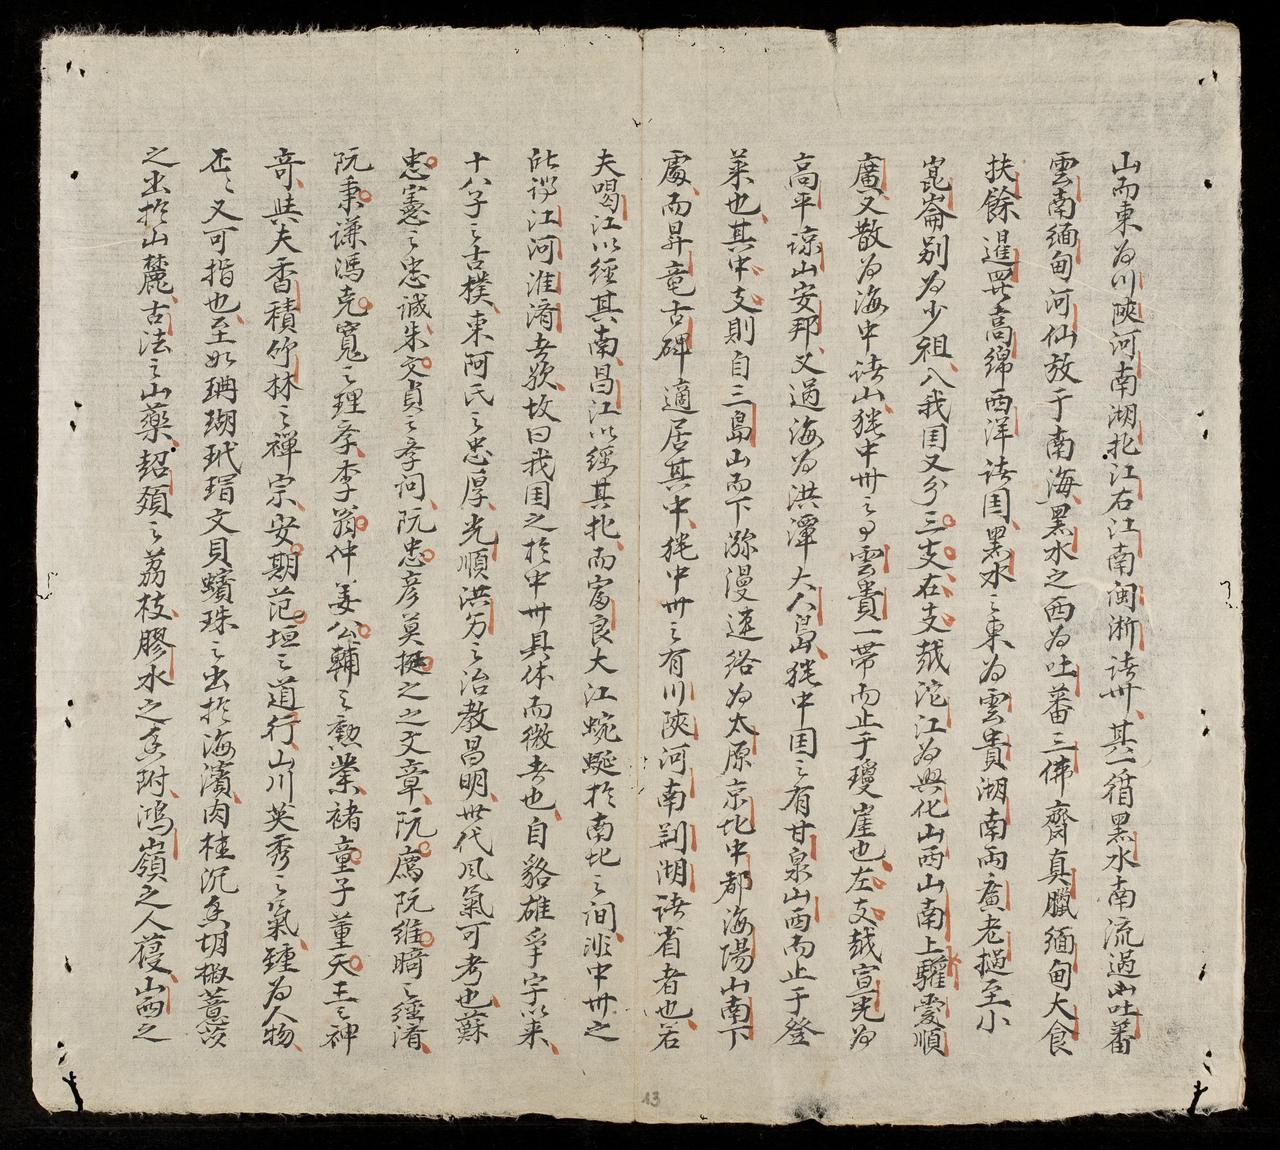 山而東為川陝河南湖北江右江南闽浙諸卅其一循黑水南流過山吐蕃
雲南緬甸河仙放于南海黑水之西為吐蕃三佛齊真臘緬甸大食
扶餘暹羅高綿西洋諸国黑水之東為雲貴湖南両廣老撾至小
崑崙别為少祖入我国又分三支右支越沱江為興化山西山南上驩愛順
廣又散為海中諸山猶中卅之有雲貴一帯而止于瓊崖也左支越宣光為
高平諒山安邦又過海為洪潭大人島猶中国之有甘泉山西而止于登
莱也其中支則自三島山而下㳽漫連絡為太原京北中都海陽山南下
處而昇竜古碑適居其中猶中卅之有川陝河南荆湖諸省者也若
夫喝江以經其南昌江以經其北而富良大江蜿蜒於南北之间非中卅之
所謂江河淮濟者欤故曰我国之於中卅具体而微者也自貉雄爭字以来
十八子之古樸東阿氏之忠厚光順洪㓛之治教昌明世代風氣可考也蘇
忠憲之忠诚朱文貞之孝问阮忠彦莫挺之之文章阮廌阮維𣋚之經濟
阮秉谦馮克寬之理孝李翁仲姜公輔之勲業褚童子董天王之神
竒與夫香積竹林之禅宗安期范垣之道行山川英秀之氣鍾為人物
歷歷又可指也至如珊瑚玳瑁文貝蠙珠之出於海濱肉桂沉香胡椒薏苡
之出於山麓古法之山藥韶頠之荔枝膠水之香附鴻嶺之人葠山西之
13